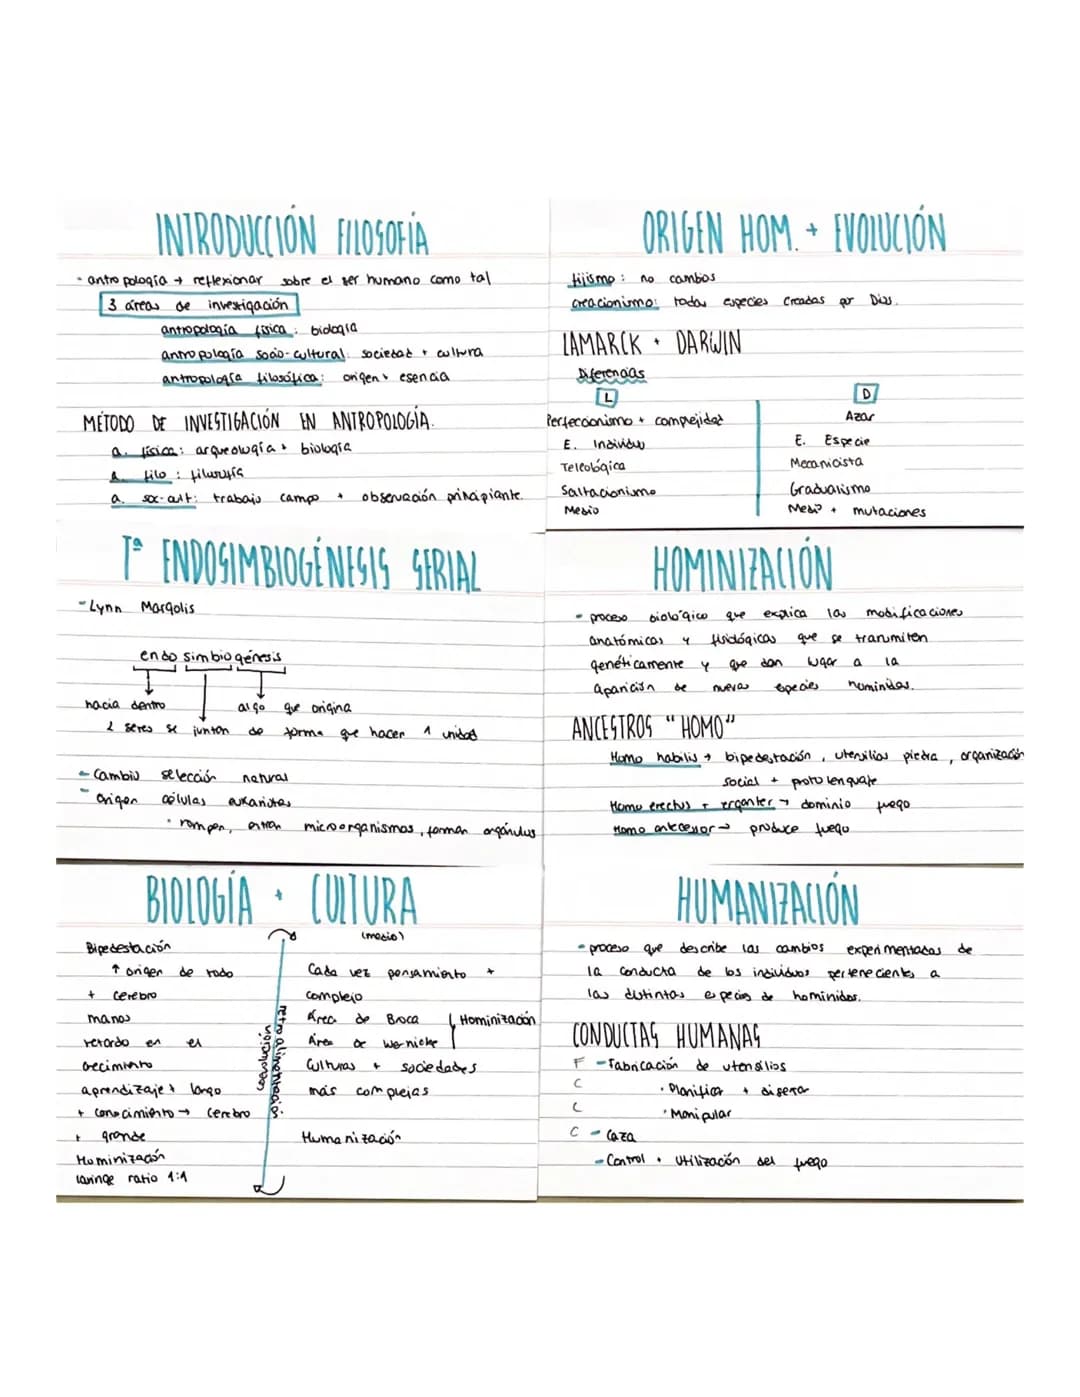 INTRODUCCIÓN FILOSOFÍA
- antropología → reflexionar sobre el ser humano como tal
3 áreas de investigación
antropología física: biología
antropología socio-cultural: sociedad + cultura
antropología filosófica: origen + esencia
MÉTODO DE INVESTIGACIÓN EN ANTROPOLOGÍA.
a. física: arqueología + biología
a. filo: filosofía
a. soc-cult: trabajo campo + observación principiante.
ORIGEN HOM. + EVOLUCIÓN
fijismo: no cambios
creacionismo: todas especies creadas por Dios.
LAMARCK + DARWIN
Diferencias
L
Perfeccionismo + complejidad
E. Individuo
Teleológica
Saltacionismo
Medio
D
Azar
E. Especie
Mecanicista
Gradualismo
Medio + mutaciones
Tª ENDOSIMBIOGÉNESIS SERIAL
- Lynn Margolis
endosimbiogénesis
hacia dentro
algo que origina
2 seres se juntan de forma que hacer 1 unidad
- Cambio selección natural
- Origen células eukariotas
· rompen, entran microorganismos, forman orgánulos
HOMINIZACIÓN
- proceso biológico que explica las modificaciones
anatómicas y fisiológicas que se transmiten
genéticamente y que dan lugar a la
aparición de nuevas especies homínidas.
ANCESTROS "HOMO"
Homo habilis → bipedestación, utensilios piedra, organización
social + protolenguaje
Homo erectus + erganter → dominio fuego
Homo antecesor → produce fuego
BIOLOGÍA + CULTURA
(medio)
Bipedestación
↑ origen de todo
+ cerebro
manos
retardo en el
crecimiento
aprendizaje + largo
+ conocimiento → cerebro
+ grande
Hominización
laringe ratio 1:1
retroalimentación
Cada vez pensamiento +
complejo
Área de Broca
Área de Wernicke
Hominización
Culturas + sociedades
más complejas
Humanización
HUMANIZACIÓN
- proceso que describe las cambios experimentadas de
la conducta de los individuos pertenecientes a
las distintas especies de homínidos.
CONDUCTAS HUMANAS
F - Fabricación de utensilios
C · Planificar + diseñar
C · Manipular
C - Caza
- Control + utilización del fuego